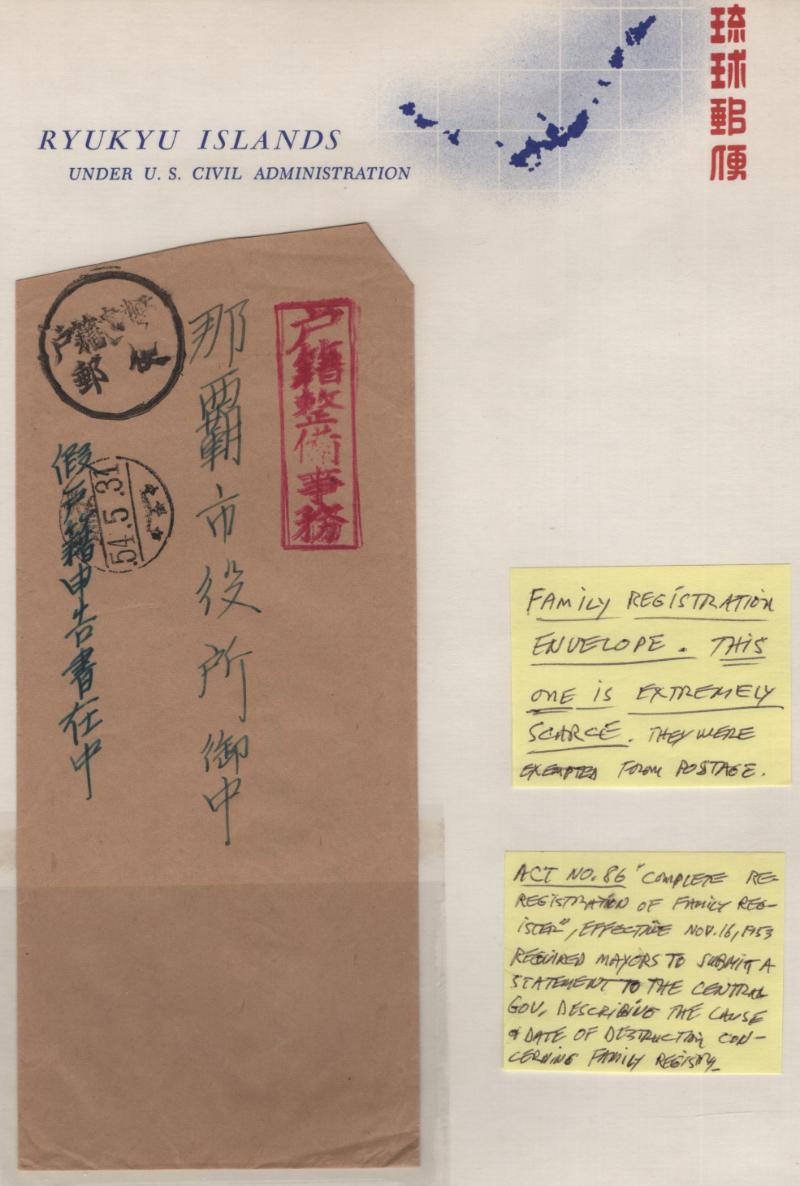 琉球郵便
RYUKYU ISLANDS
UNDER U. S. CIVIL ADMINISTRATION
戸籍整備事務
那覇市役所御中
戸籍
郵便
54.5.31
假戸籍申告書在中
FAMILY REGISTRATION
ENVELOPE. THIS
ONE IS EXTREMELY
SCARCE. THEY WERE
EXEMPTED FROM POSTAGE.
ACT NO. 86 "COMPLETE RE-
REGISTRATION OF FAMILY REG-
ISTER", EFFECTIVE NOV. 16, 1953
REQUIRED MAYORS TO SUBMIT A
STATEMENT TO THE CENTRAL
GOV. DESCRIBING THE CAUSE
& DATE OF DESTRUCTION CON-
CERNING FAMILY REGISTRY.